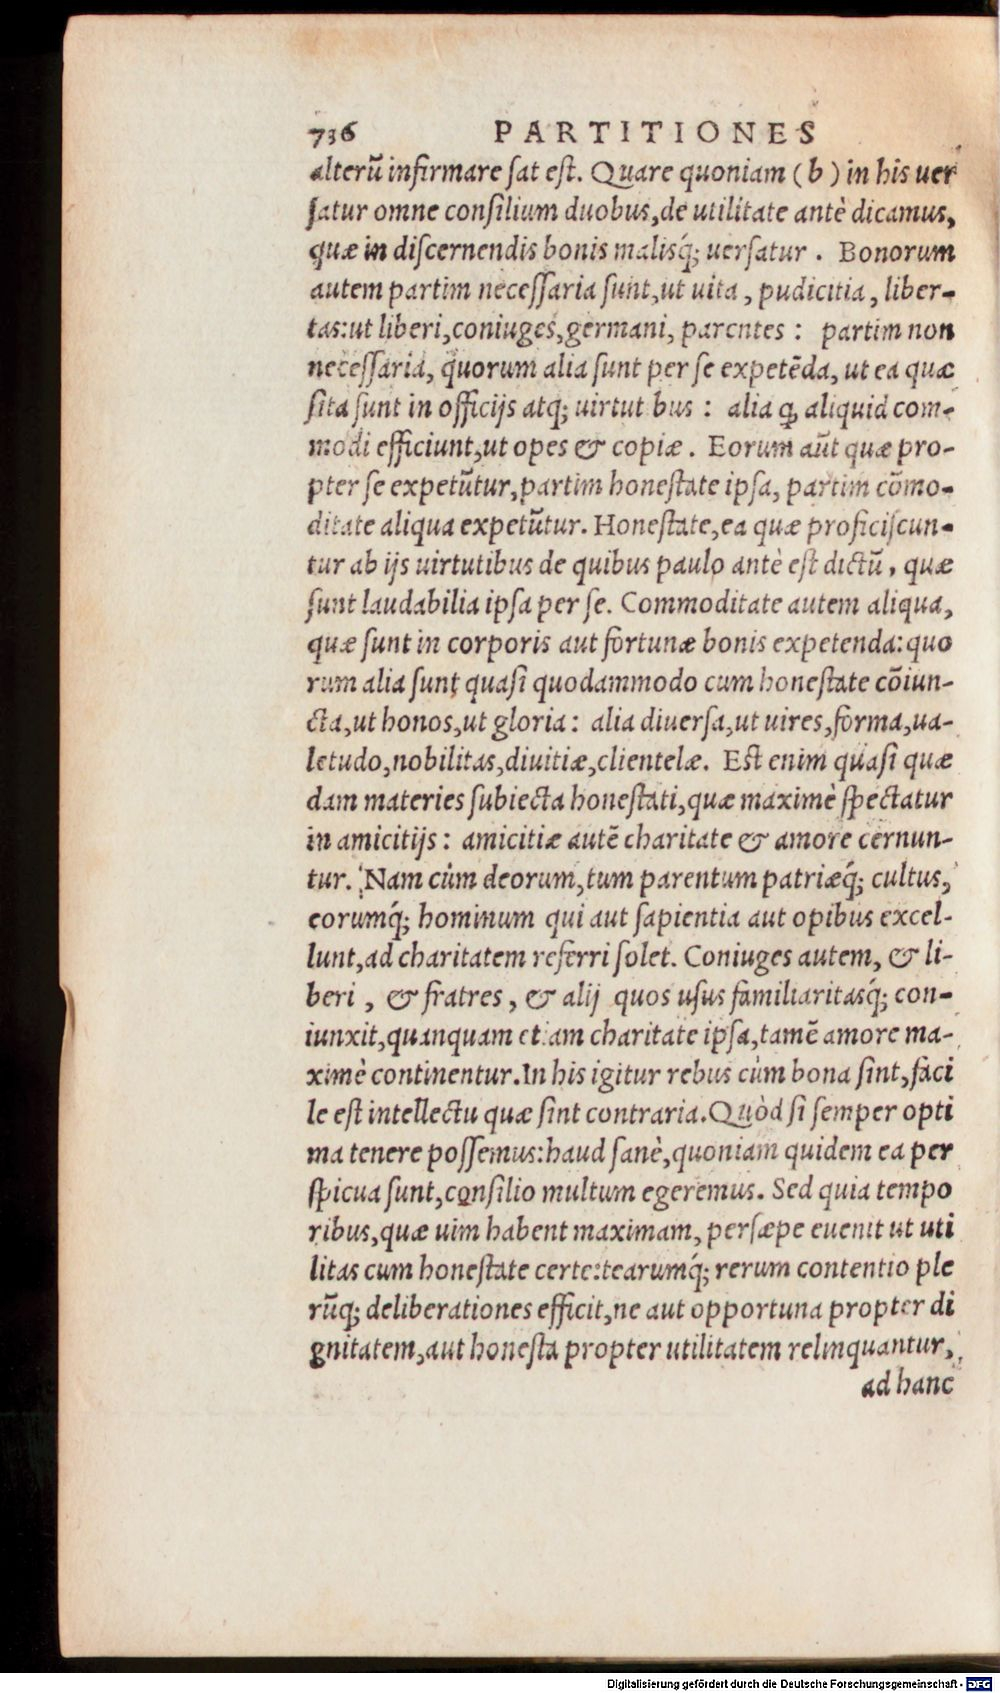 736 PARTITIONES
alterũ infirmare ſat eſt. Quare quoniam (b) in his uer
ſatur omne conſilium duobus, de utilitate antè dicamus,
quæ in diſcernendis bonis malisq́; uerſatur. Bonorum
autem partim neceſſaria ſunt, ut uita, pudicitia, liber-
tas: ut liberi, coniuges, germani, parentes: partim non
neceſſaria, quorum alia ſunt per ſe expetẽda, ut ea quæ
ſita ſunt in officijs atq; uirtut bus: alia ꝙ aliquid com-
modi efficiunt, ut opes & copiæ. Eorum aũt quæ pro-
pter ſe expetũtur, partim honeſtate ipſa, partim cõmo-
ditate aliqua expetũtur. Honeſtate, ea quæ proficiſcun-
tur ab ijs uirtutibus de quibus paulo antè eſt dictũ, quæ
ſunt laudabilia ipſa per ſe. Commoditate autem aliqua,
quæ ſunt in corporis aut fortunæ bonis expetenda: quo
rum alia ſunt quaſi quodammodo cum honeſtate cõiun-
cta, ut honos, ut gloria: alia diuerſa, ut uires, forma, ua-
letudo, nobilitas, diuitiæ, clientelæ. Eſt enim quaſi quæ
dam materies ſubiecta honeſtati, quæ maximè ſpectatur
in amicitijs: amicitiæ autẽ charitate & amore cernun-
tur. Nam cùm deorum, tum parentum patriæq́; cultus,
eorumq́; hominum qui aut ſapientia aut opibus excel-
lunt, ad charitatem referri ſolet. Coniuges autem, & li-
beri, & fratres, & alij quos uſus familiaritasq́; con-
iunxit, quanquam et am charitate ipſa, tamẽ amore ma-
ximè continentur. In his igitur rebus cùm bona ſint, faci
le eſt intellectu quæ ſint contraria. Quòd ſi ſemper opti
ma tenere poſſemus: haud ſanè, quoniam quidem ea per
ſpicua ſunt, conſilio multum egeremus. Sed quia tempo
ribus, quæ uim habent maximam, perſæpe euenit ut uti
litas cum honeſtate certet: earumq́; rerum contentio ple
rũq; deliberationes efficit, ne aut opportuna propter di
gnitatem, aut honeſta propter utilitatem relinquantur,
ad hanc
Digitalisierung gefördert durch die Deutsche Forschungsgemeinschaft - DFG